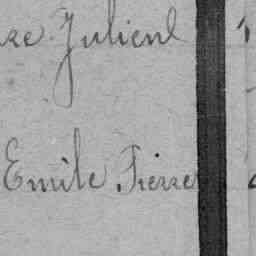 re Julienl
Emile Pierre